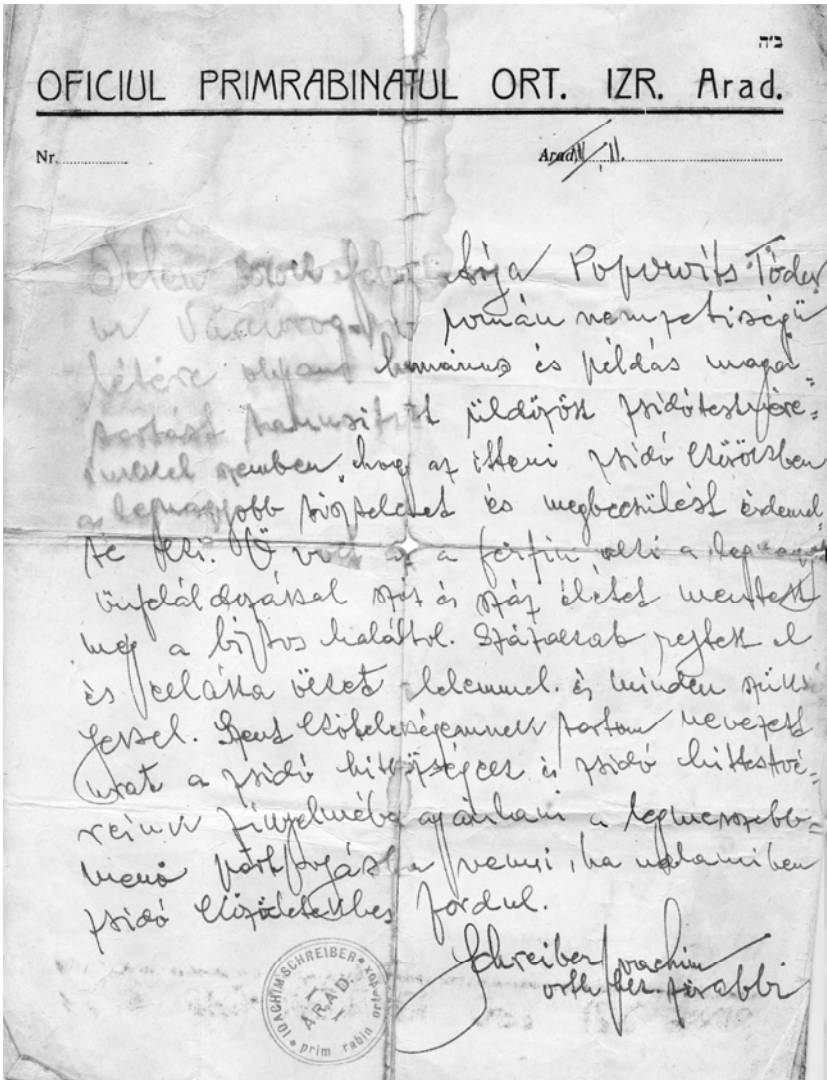 ב״ה
OFICIUL PRIMRABINATUL ORT. IZR. Arad.
Nr. Arad,
Jelen sorok Popovits Tódor
úr román nemzetiségű
létére olyan humánus és példás maga=
tartást tanusított üldözött zsidótestvére=
inkkel szemben, hogy az itteni zsidó körökben
a legnagyobb tiszteletet és megbecsülést érdemel=
te ki. Ő volt az a férfiú, aki a legnagyobb
önfeláldozással száz és száz életet mentett
meg a biztos haláltol. Százakat rejtett el
és ellátta őket élelemmel és minden szüksé
gessel. Szent kötelességemnek tartom nevezett
urat a zsidó hitközségek és zsidó hittestvé=
reink figyelmébe ajánlani a legmesszebb=
menő pártfogásba venni, ha valamiben
zsidó fordul.
Schreiber Joachim
orth. főrabbi
IOACHIM SCHREIBER
ARAD.
prim rabin ortodox